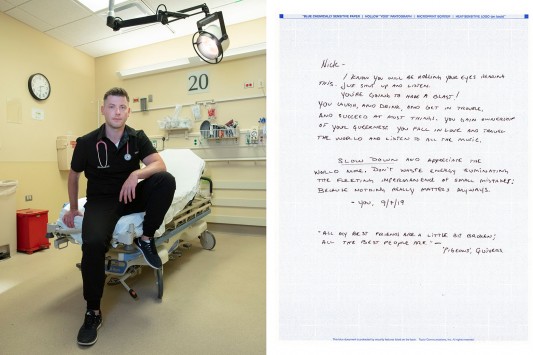 20
"BLUE CHEMICALLY SENSITIVE PAPER | HOLLOW "VOID" PANTOGRAPH | MICROPRINT BORDER | HEAT-SENSITIVE
Nick -
I KNOW YOU WILL BE ROLLING YOUR EYES READING
THIS. JUST SHUT UP AND LISTEN.
YOU'RE GOING TO HAVE A BLAST!
YOU LAUGH, AND DRINK, AND GET IN TROUBLE,
AND SUCCEED AT MOST THINGS. YOU GAIN OWNERSHIP
OF YOUR QUEERNESS. YOU FALL IN LOVE AND TRAVEL
THE WORLD AND LISTEN TO ALL THE MUSIC.
SLOW DOWN AND APPRECIATE THE
WORLD MORE. DON'T WASTE ENERGY RUMINATING
THE FLEETING IMPERMANENCE OF SMALL MISTAKES.
BECAUSE NOTHING REALLY MATTERS ANYWAYS.
- YOU, 9/9/19
"ALL MY BEST FRIENDS ARE A LITTLE BIT BROKEN;
ALL THE BEST PEOPLE ARE." -
'PIGEONS',